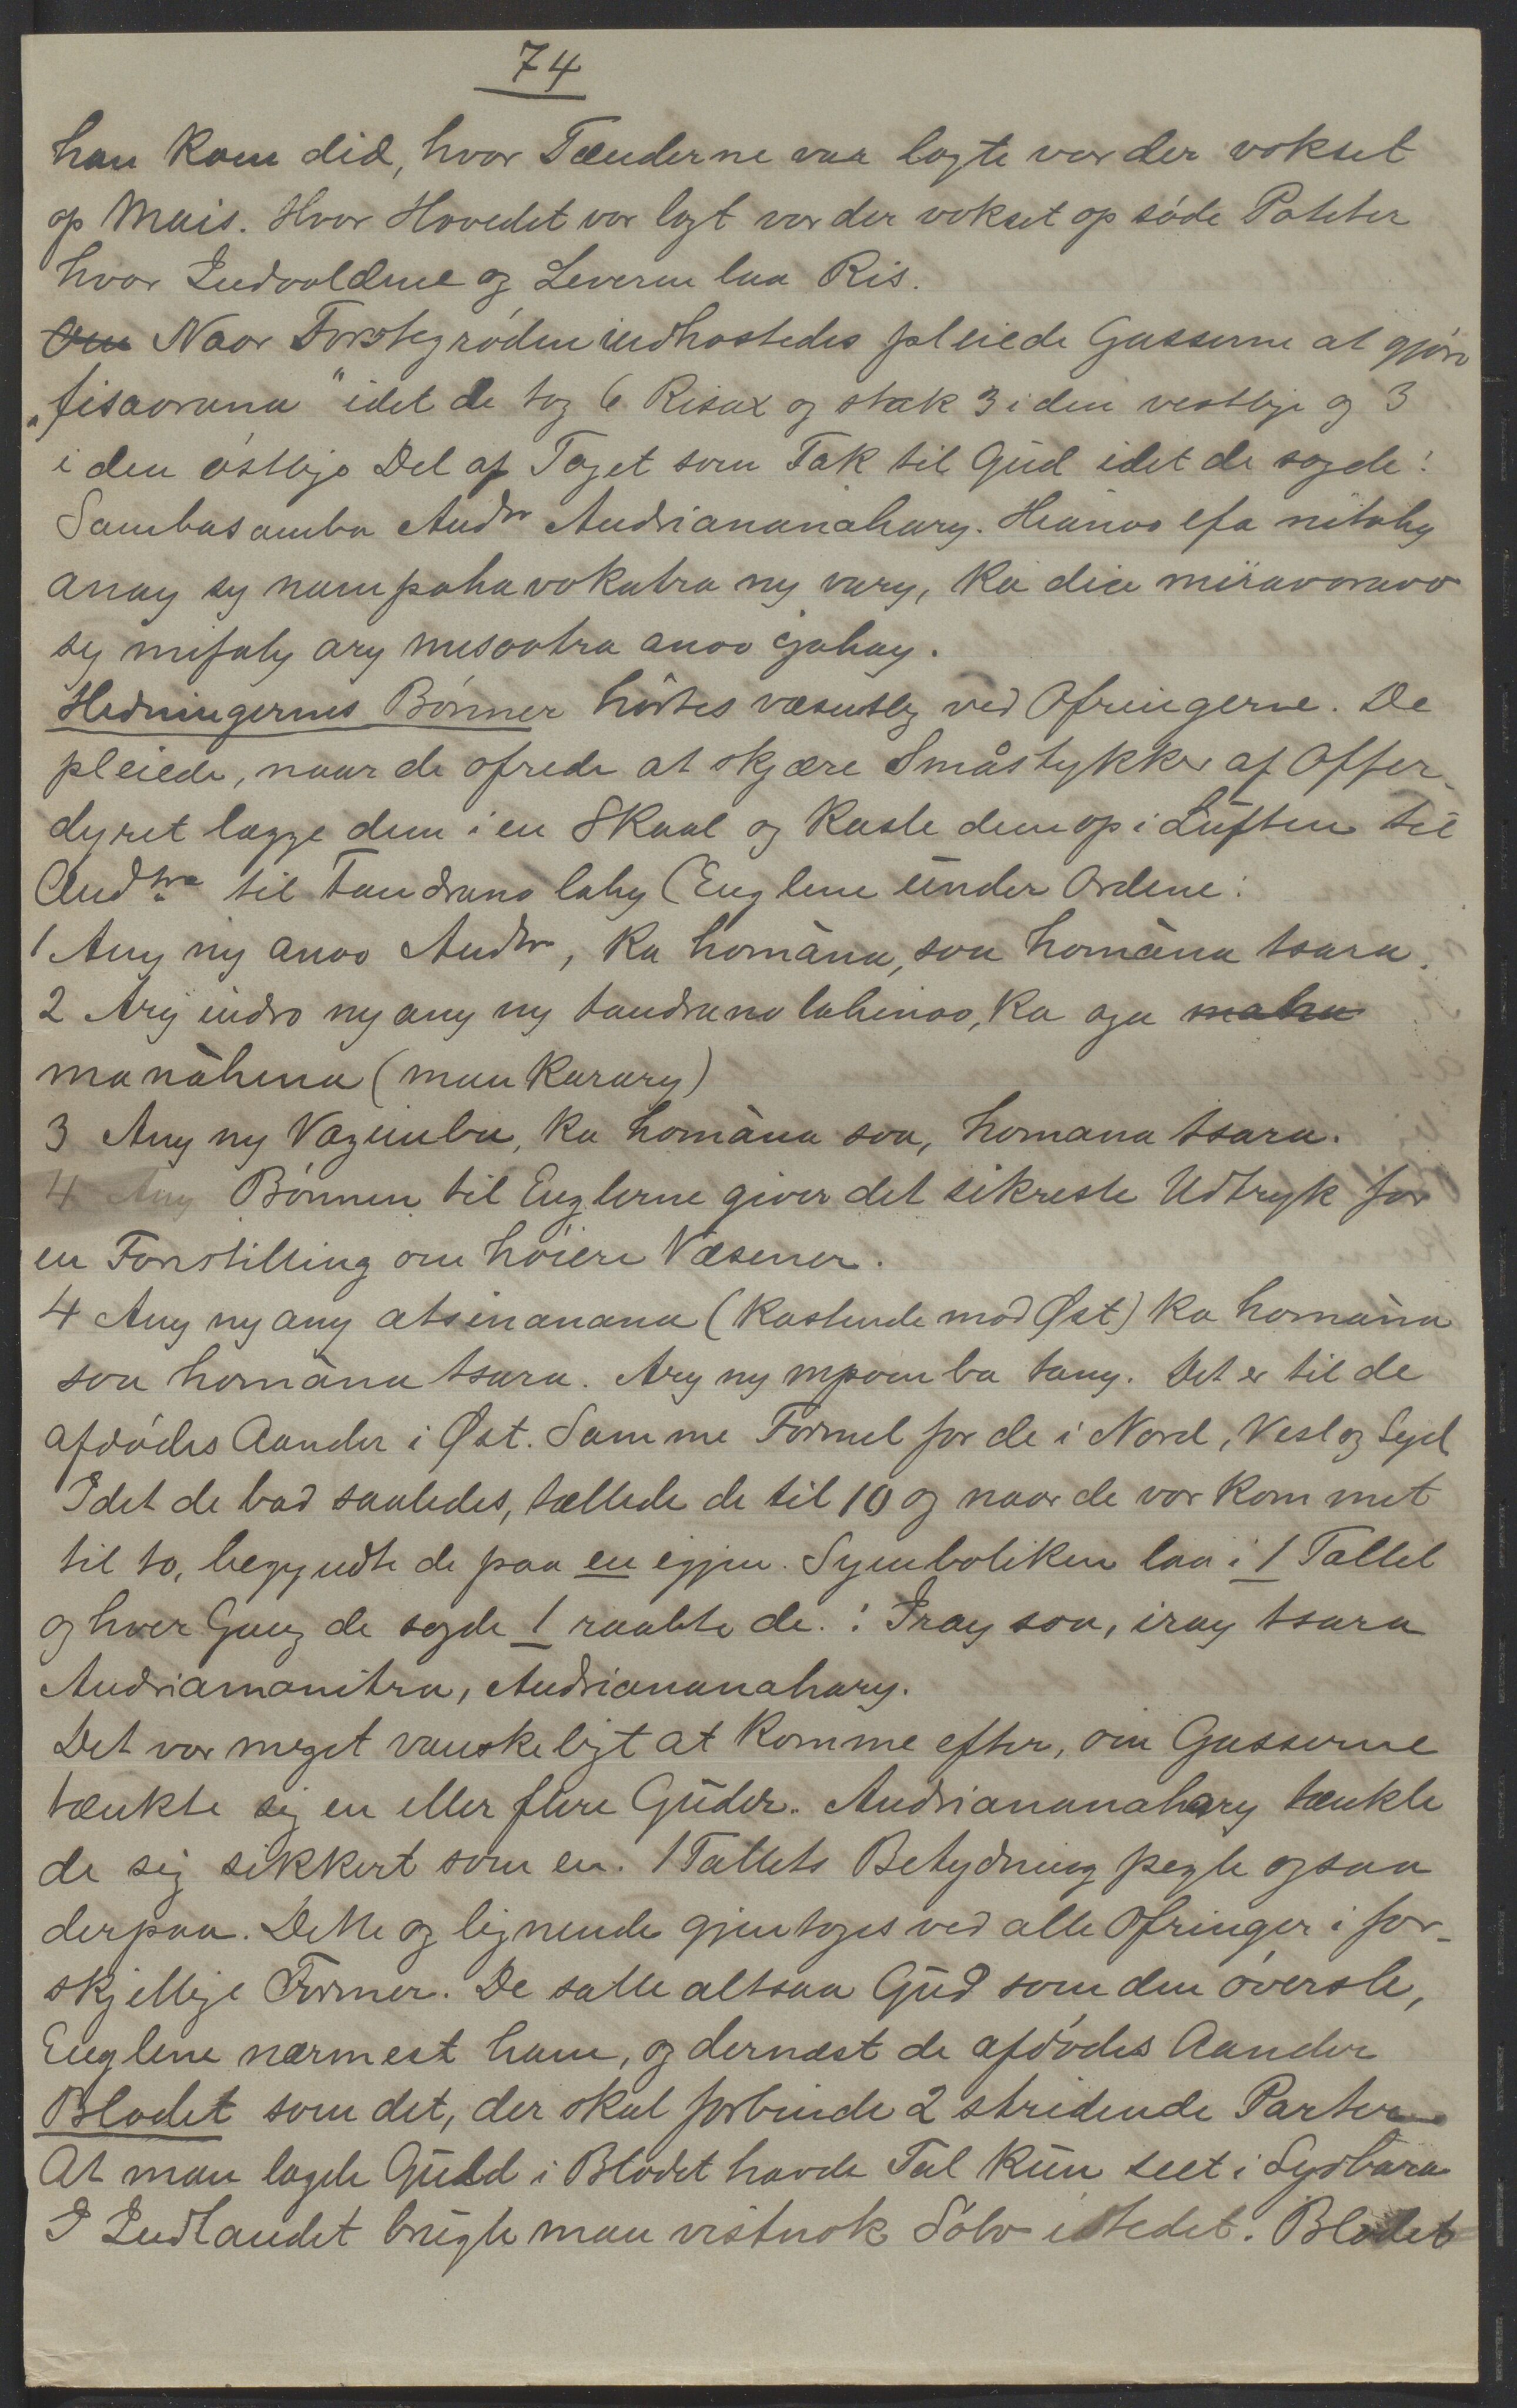 74
han kom did, hvor Tænderne var lagte var der vokset
op Mais. Hvor Hovedet var lagt var der vokset op søde Poteter
hvor Indvoldene og Leveren laa Ris.
Om Naar Førstegrøden indhøstedes pleiede Gasserne at gjøre
"fisaorana" idet de tog 6 Risax og stak 3 i den vestlige og 3
i den østlige Del af Taget som Tak til Gud idet de sagde:
Sambasamba Andr Andriananahary. Hianao efa nitahy
anay sy nampahavokatra ny vary, ka dia miravoravo
sy mifaly ary misaotra anao izahay.
Hedningernes Bønner hørtes væsentlig ved Ofringerne. De
pleiede, naar de ofrede at skjære Småstykker af Offer-
dyret lægge dem i en Skaal og kaste dem op i Luften til
Andtra til Tandrano lahy (Englene under Ordene:
1 Any ny anao Andr, ka homàna, soa homàna tsara.
2 Ary indro ny any ny tandrano lahinao, ka aza maha
manàhena (mankarary)
3 Any ny Vazimba, ka homàna soa, homana tsara.
4 Any Bønnen til Englerne giver det sikreste Udtryk for
en Forestilling om høiere Væsener.
4 Any ny any atsinanana (kastende mod Øst) ka homàna
soa homàna tsara. Ary ny mpomba tany. Det er til de
afdødes Aander i Øst. Samme Formel for de i Nord, Vest og Syd
Idet de bad saaledes, tællede de til 10 og naar de var kommet
til to, begyndte de paa en igjen. Symboliken laa i 1 Tallet
og hver Gang de sagde 1 raabte de: Iray soa, iray tsara
Andriamanitra, Andriananahary.
Det var meget vanskeligt at komme efter, om Gasserne
tænkte sig en eller flere Guder. Andriananahary tænkte
de sig sikkert som en. 1 Tallets Betydning pegte ogsaa
derpaa. Dette og lignende gjentoges ved alle Ofringer i for-
skjellige Former. De satte altsaa Gud som den øverste,
Englene nærmest ham, og dernæst de afdødes Aander
Blodet som det, der skal forbinde 2 stridende Parter
At man lagde Guld i Blodet havde Tal kun seet i Sydbara
I Indlandet brugte man vistnok Sølv istedet. Blodet